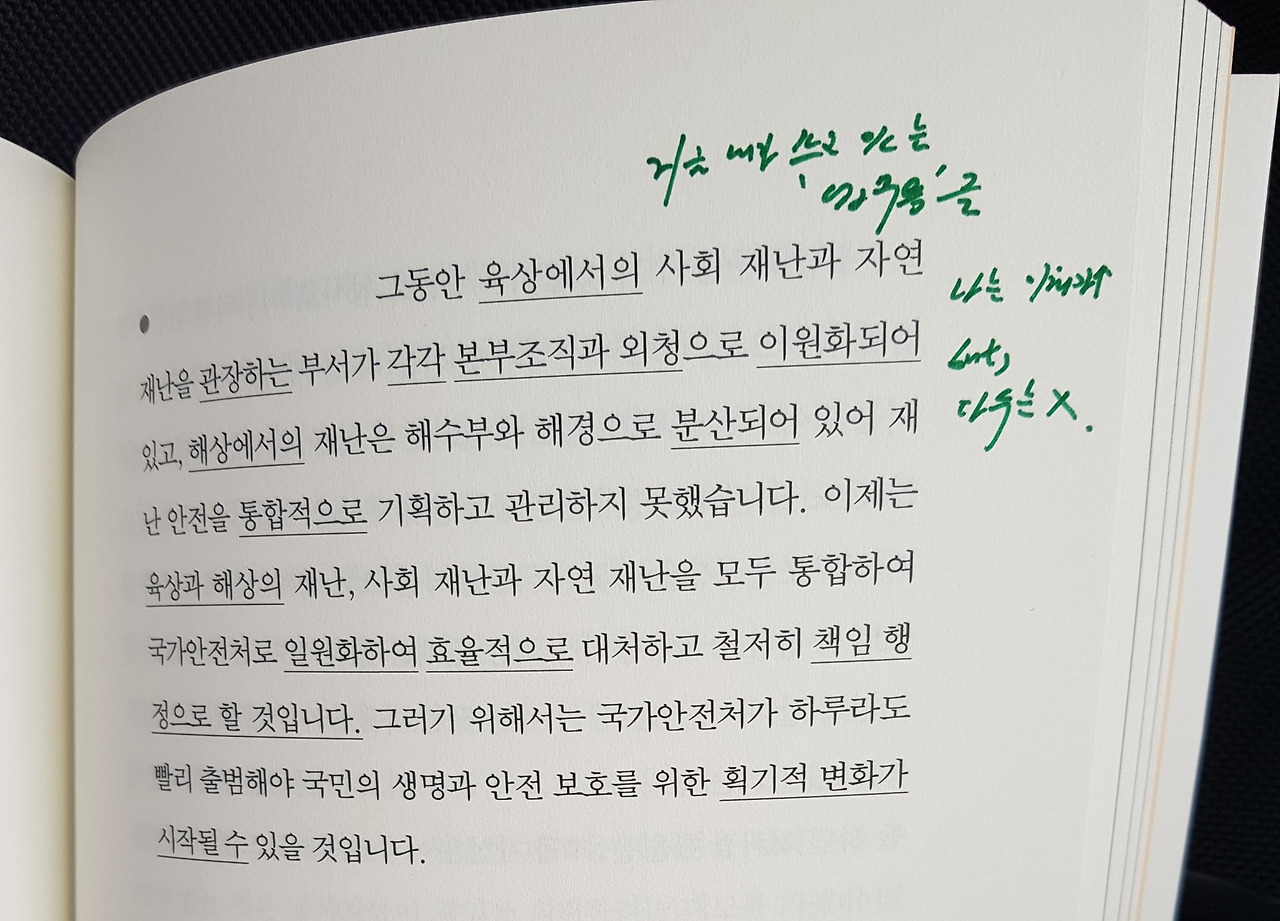 지금 내가 쓰고 있는
'업무용' 글
그동안 육상에서의 사회 재난과 자연
나는 이해가↑
재난을 관장하는 부서가 각각 본부조직과 외청으로 이원화되어
but,
있고, 해상에서의 재난은 해수부와 해경으로 분산되어 있어 재
다수는 X.
난 안전을 통합적으로 기획하고 관리하지 못했습니다. 이제는
육상과 해상의 재난, 사회 재난과 자연 재난을 모두 통합하여
국가안전처로 일원화하여 효율적으로 대처하고 철저히 책임 행
정으로 할 것입니다. 그러기 위해서는 국가안전처가 하루라도
빨리 출범해야 국민의 생명과 안전 보호를 위한 획기적 변화가
시작될 수 있을 것입니다.